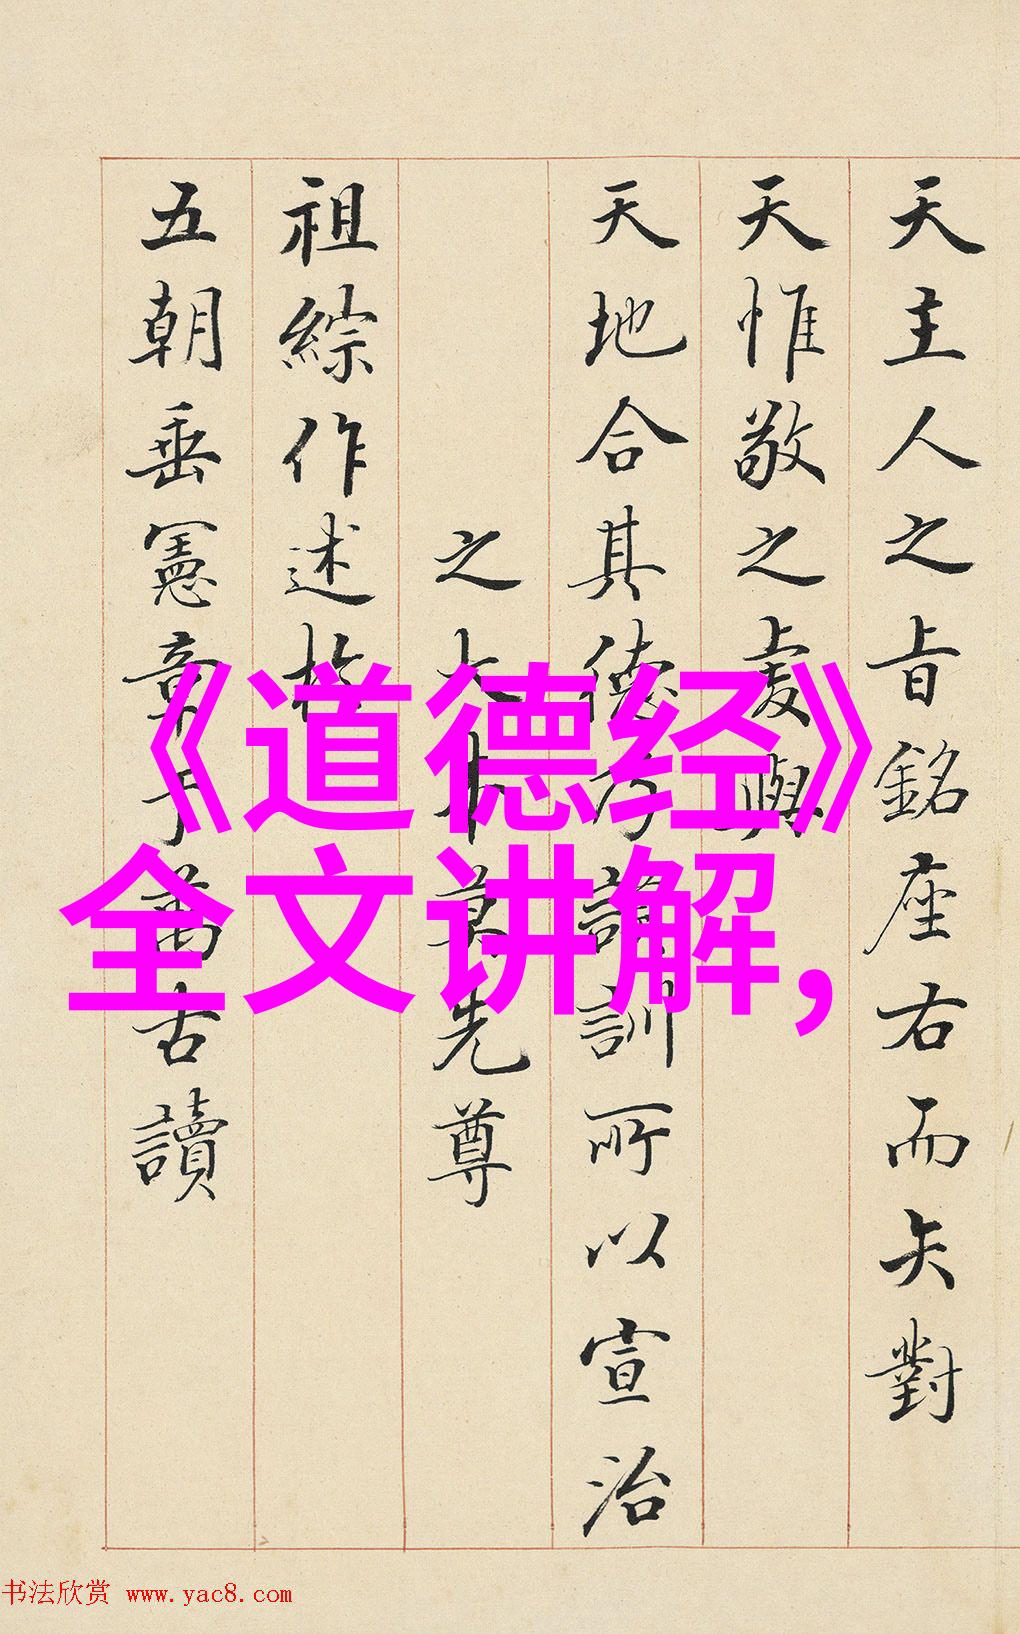 天主人之旨銘座右而矢對
天惟敬之處與
天地合其德乃謨訓所以宣治
之大本莫先尊
祖綜作述於
五朝垂憲章于萬古讀
《道德经》
全文讲解,
书法欣赏 www.yac8.com